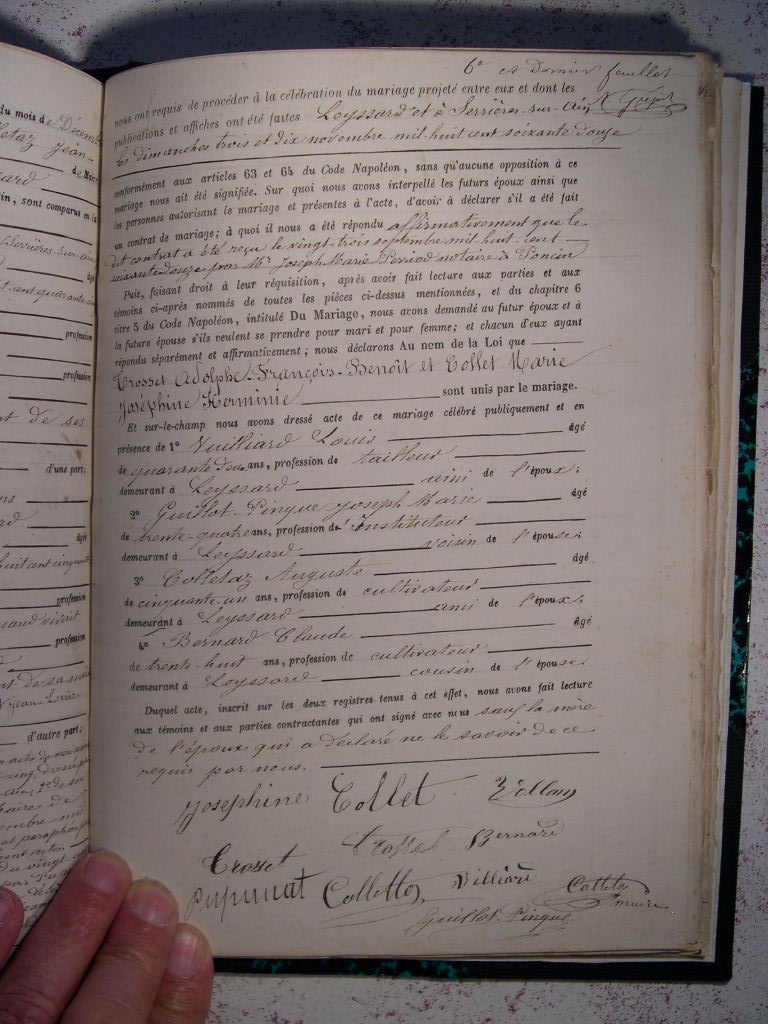 6e et Dernier feuillet
nous ont requis de procéder à la célébration du mariage projeté entre eux et dont les
publications et affiches ont été faites Leyssard et à Serrières-sur-Ain
les dimanches trois et dix novembre mil huit cent soixante douze
conformément aux articles 63 et 64 du Code Napoléon, sans qu'aucune opposition à ce
mariage nous ait été signifiée. Sur quoi nous avons interpellé les futurs époux ainsi que
les personnes autorisant le mariage et présentes à l'acte, d'avoir à déclarer s'il a été fait
un contrat de mariage; à quoi il nous a été répondu affirmativement que le
dit contrat a été reçu le vingt-trois septembre mil huit cent
soixante douze par Mr Joseph Marie Perriod notaire à Poncin
Puis, faisant droit à leur réquisition, après avoir fait lecture aux parties et aux
témoins ci-après nommés de toutes les pièces ci-dessus mentionnées, et du chapitre 6
titre 5 du Code Napoléon, intitulé Du Mariage, nous avons demandé au futur époux et à
la future épouse s'ils veulent se prendre pour mari et pour femme; et chacun d'eux ayant
répondu séparément et affirmativement; nous déclarons Au nom de la Loi que
Crosset Adolphe-François-Benoît et Collet Marie
Joséphine Herminie sont unis par le mariage.
Et sur-le-champ nous avons dressé acte de ce mariage célébré publiquement et en
présence de 1o Vuilliard Louis âgé
de quarante deux ans, profession de tailleur
demeurant à Leyssard ami de l'époux;
2o Guillot-Pingue Joseph Marie âgé
de trente-quatre ans, profession d'Instituteur
demeurant à Leyssard voisin de l'épouse;
3o Colletaz Auguste âgé
de cinquante-un ans, profession de cultivateur
demeurant à Leyssard ami de l'époux;
4o Bernard Claude âgé
de trente-huit ans, profession de cultivateur
demeurant à Leyssard cousin de l'épouse.
Duquel acte, inscrit sur les deux registres tenus à cet effet, nous avons fait lecture
aux témoins et aux parties contractantes qui ont signé avec nous sauf la mère
de l'époux qui a déclaré ne le savoir de ce
requis par nous.
Josephine Collet
Crosset Crosset Bernard
Colletta Villiard Colleta
maire
Guillot-Pingue